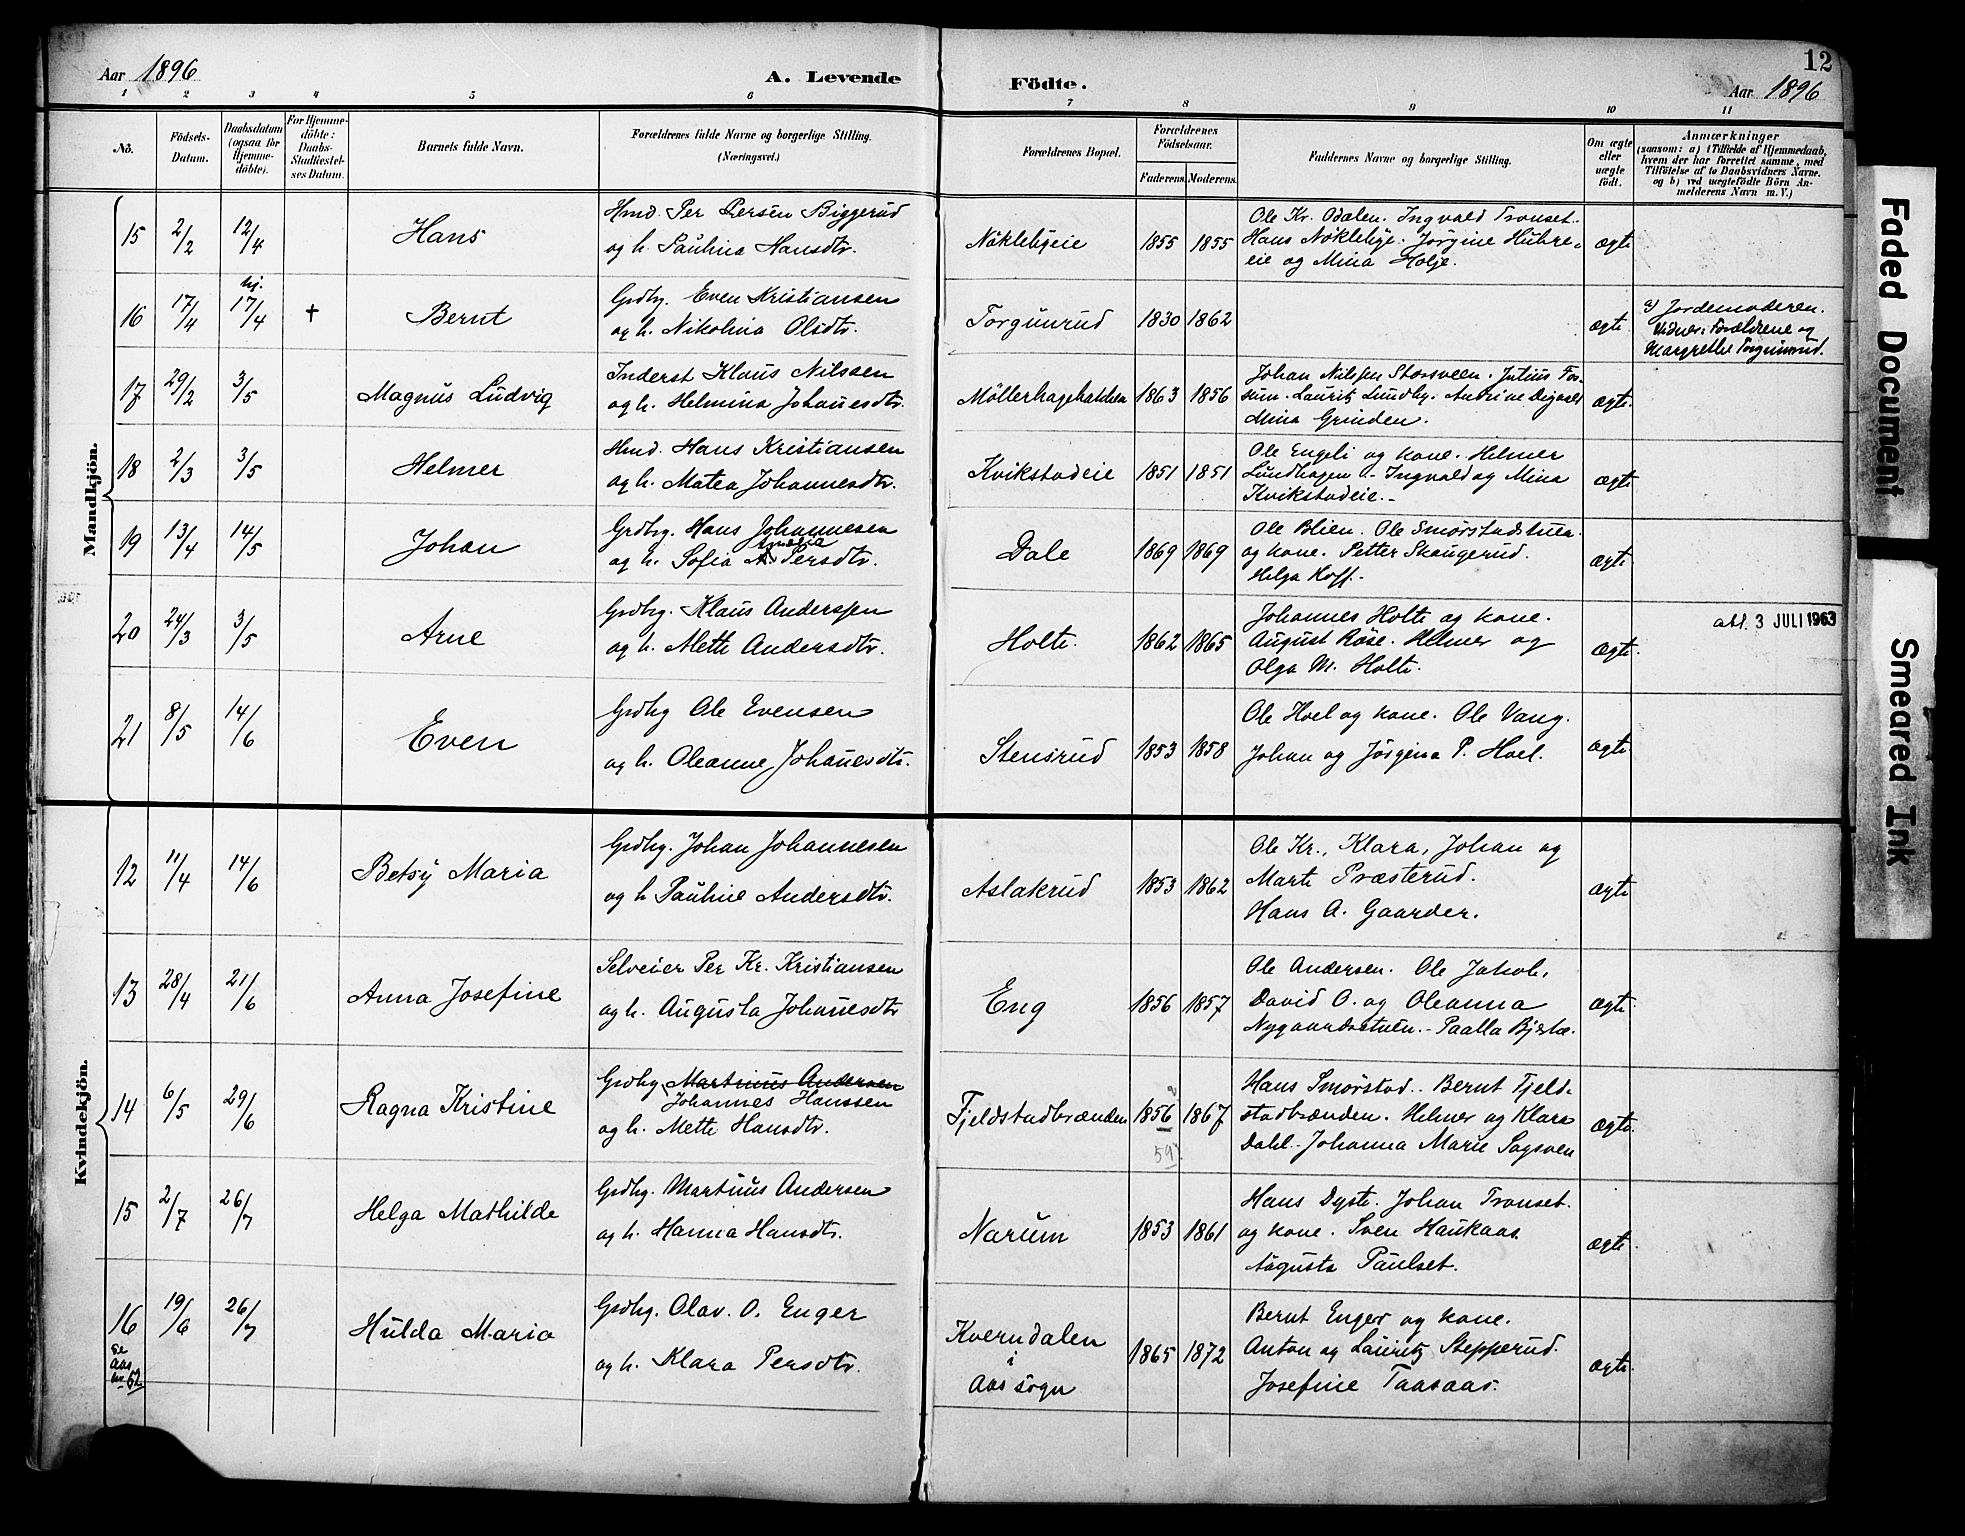 Aar 1896
A. Levende
Födte.
12
Aar 1896
1 2 3 4 5 6 7 8 9 10 11
No.
Födsels-
Datum.
Daabsdatum
(ogsaa for
Hjemme-
döbte).
For Hjemme-
döbte:
Daabs-
Stadfæstel-
ses Datum.
Barnets fulde Navn.
Forældrenes fulde Navne og borgerlige Stilling.
(Næringsvei.)
Forældrenes Bopæl.
Forældrenes
Födselsaar.
Faderens. Moderens.
Faddernes Navne og borgerlige Stilling.
Om ægte
eller
uægte
födt.
Anmærkninger
(saasom: a) i Tilfælde af Hjemmedaab,
hvem der har forrettet samme, med
Tilföielse af to Daabsvidners Navne.
og b) ved uægtefödte Börn An-
melderens Navn m. V.)
Mandkjön.
15 2/2 12/4 Hans
Hmd. Per Persen Biggerud
og h. Paulina Hansdtr.
Nöklebyeie 1855 1855
Ole Kr. Dalen. Ingvald Tronset.
Hans Nöklebye. Jörgine Hubre-
eie og Mina Holje.
ægte
16 17/4 hj. 17/4 + Bernt
Grdbg. Even Kristiansen
og h. Nikolina Olsdtr.
Torgunrud 1830 1862
ægte
a) Jordemoderen.
Vidner: Forældrene og
Margrethe Torgunrud.
17 29/2 3/5 Magnus Ludvig
Inderst Klaus Nilssen
og h. Helmina Johanesdtr.
Möllerhagebakken 1863 1856
Johan Nilsen Storsveen. Julius Tor-
sum. Lauritz Lundby. Andrine
Mina Grinden.
ægte.
18 2/3 3/5 Helmer
Hmd. Hans Kristiansen
og h. Matea Johannesdtr.
Kvikstadeie 1851 1851
Ole Engeli og kone. Helmer
Lundhagen. Ingvald og Mina
Kvikstadeie.-
ægte
19 13/4 14/5 Johan
Grdbg. Hans Johannesen
Amalia
og h. Sofia A. Persdtr.
Dale 1869 1869
Ole Blien. Ole Smörstadstuen
og kone. Petter Skaugerud.
Helga Koff.-
ægte
20 24/3 3/5 Arne
Grdbg. Klaus Anderssen
og h. Mette Andersdtr.
Holte. 1862 1865
Johannes Holte og kone.
August Röise. Helmer og
Olga M. Holte.
ægte.
att. 3 JULI 1963
21 8/5 14/6 Even
Grdbg Ole Evensen
og h. Oleanne Johanesdtr.
Stensrud 1853 1858
Ole Hoel og kone. Ole Vang.
Johan og Jörgina P. Hoel.
ægte
Kvindekjön.
12 11/4 14/6 Betsy Maria
Grdbg. Johan Johannesen
og h Pauline Andersdtr.
Aslakrud 1853 1862
Ole Kr., Klara, Johan og
Marte Præsterud.
Hans A. Gaarder.
ægte
13 28/4 21/6 Anna Josefine
Selveier Per Kr. Kristiansen
og h. Augusta Johanesdtr
Eng 1856 1857
Ole Andersen. Ole Jakob,
David O. og Oleanna
Nygaardsstuen.- Paalla
ægte.
14 6/5 29/6 Ragna Kristine
Grdbg Martinus Andersen
Johannes Hanssen
og h. Mette Hansdtr.
Fjeldstadbrænden 1856 1867
59
Hans Smörstad. Bernt Fjeld-
stadbrænden. Helmer og Klara
Dahl. Johanna Marie Sagsveen
ægte.
15 2/7 26/7 Helga Mathilde
Grdbg. Martinus Andersen
og h. Hanna Hansdtr.
Narum 1853 1861
Hans Dyste. Johan Tronset
og kone. Sven Haukaas.
Augusta Paulset.
ægte
16 19/6 26/7 Hulda Maria
se
Aas
nr 62
Grdbg. Olav. O. Enger
og h. Klara Persdtr.
Kverndalen
i
Aas sogn
1865 1872
Bernt Enger og kone.
Anton og Lauritz Stepperud.
Josefine Taasaas.
ægte
Faded Document
Smeared Ink